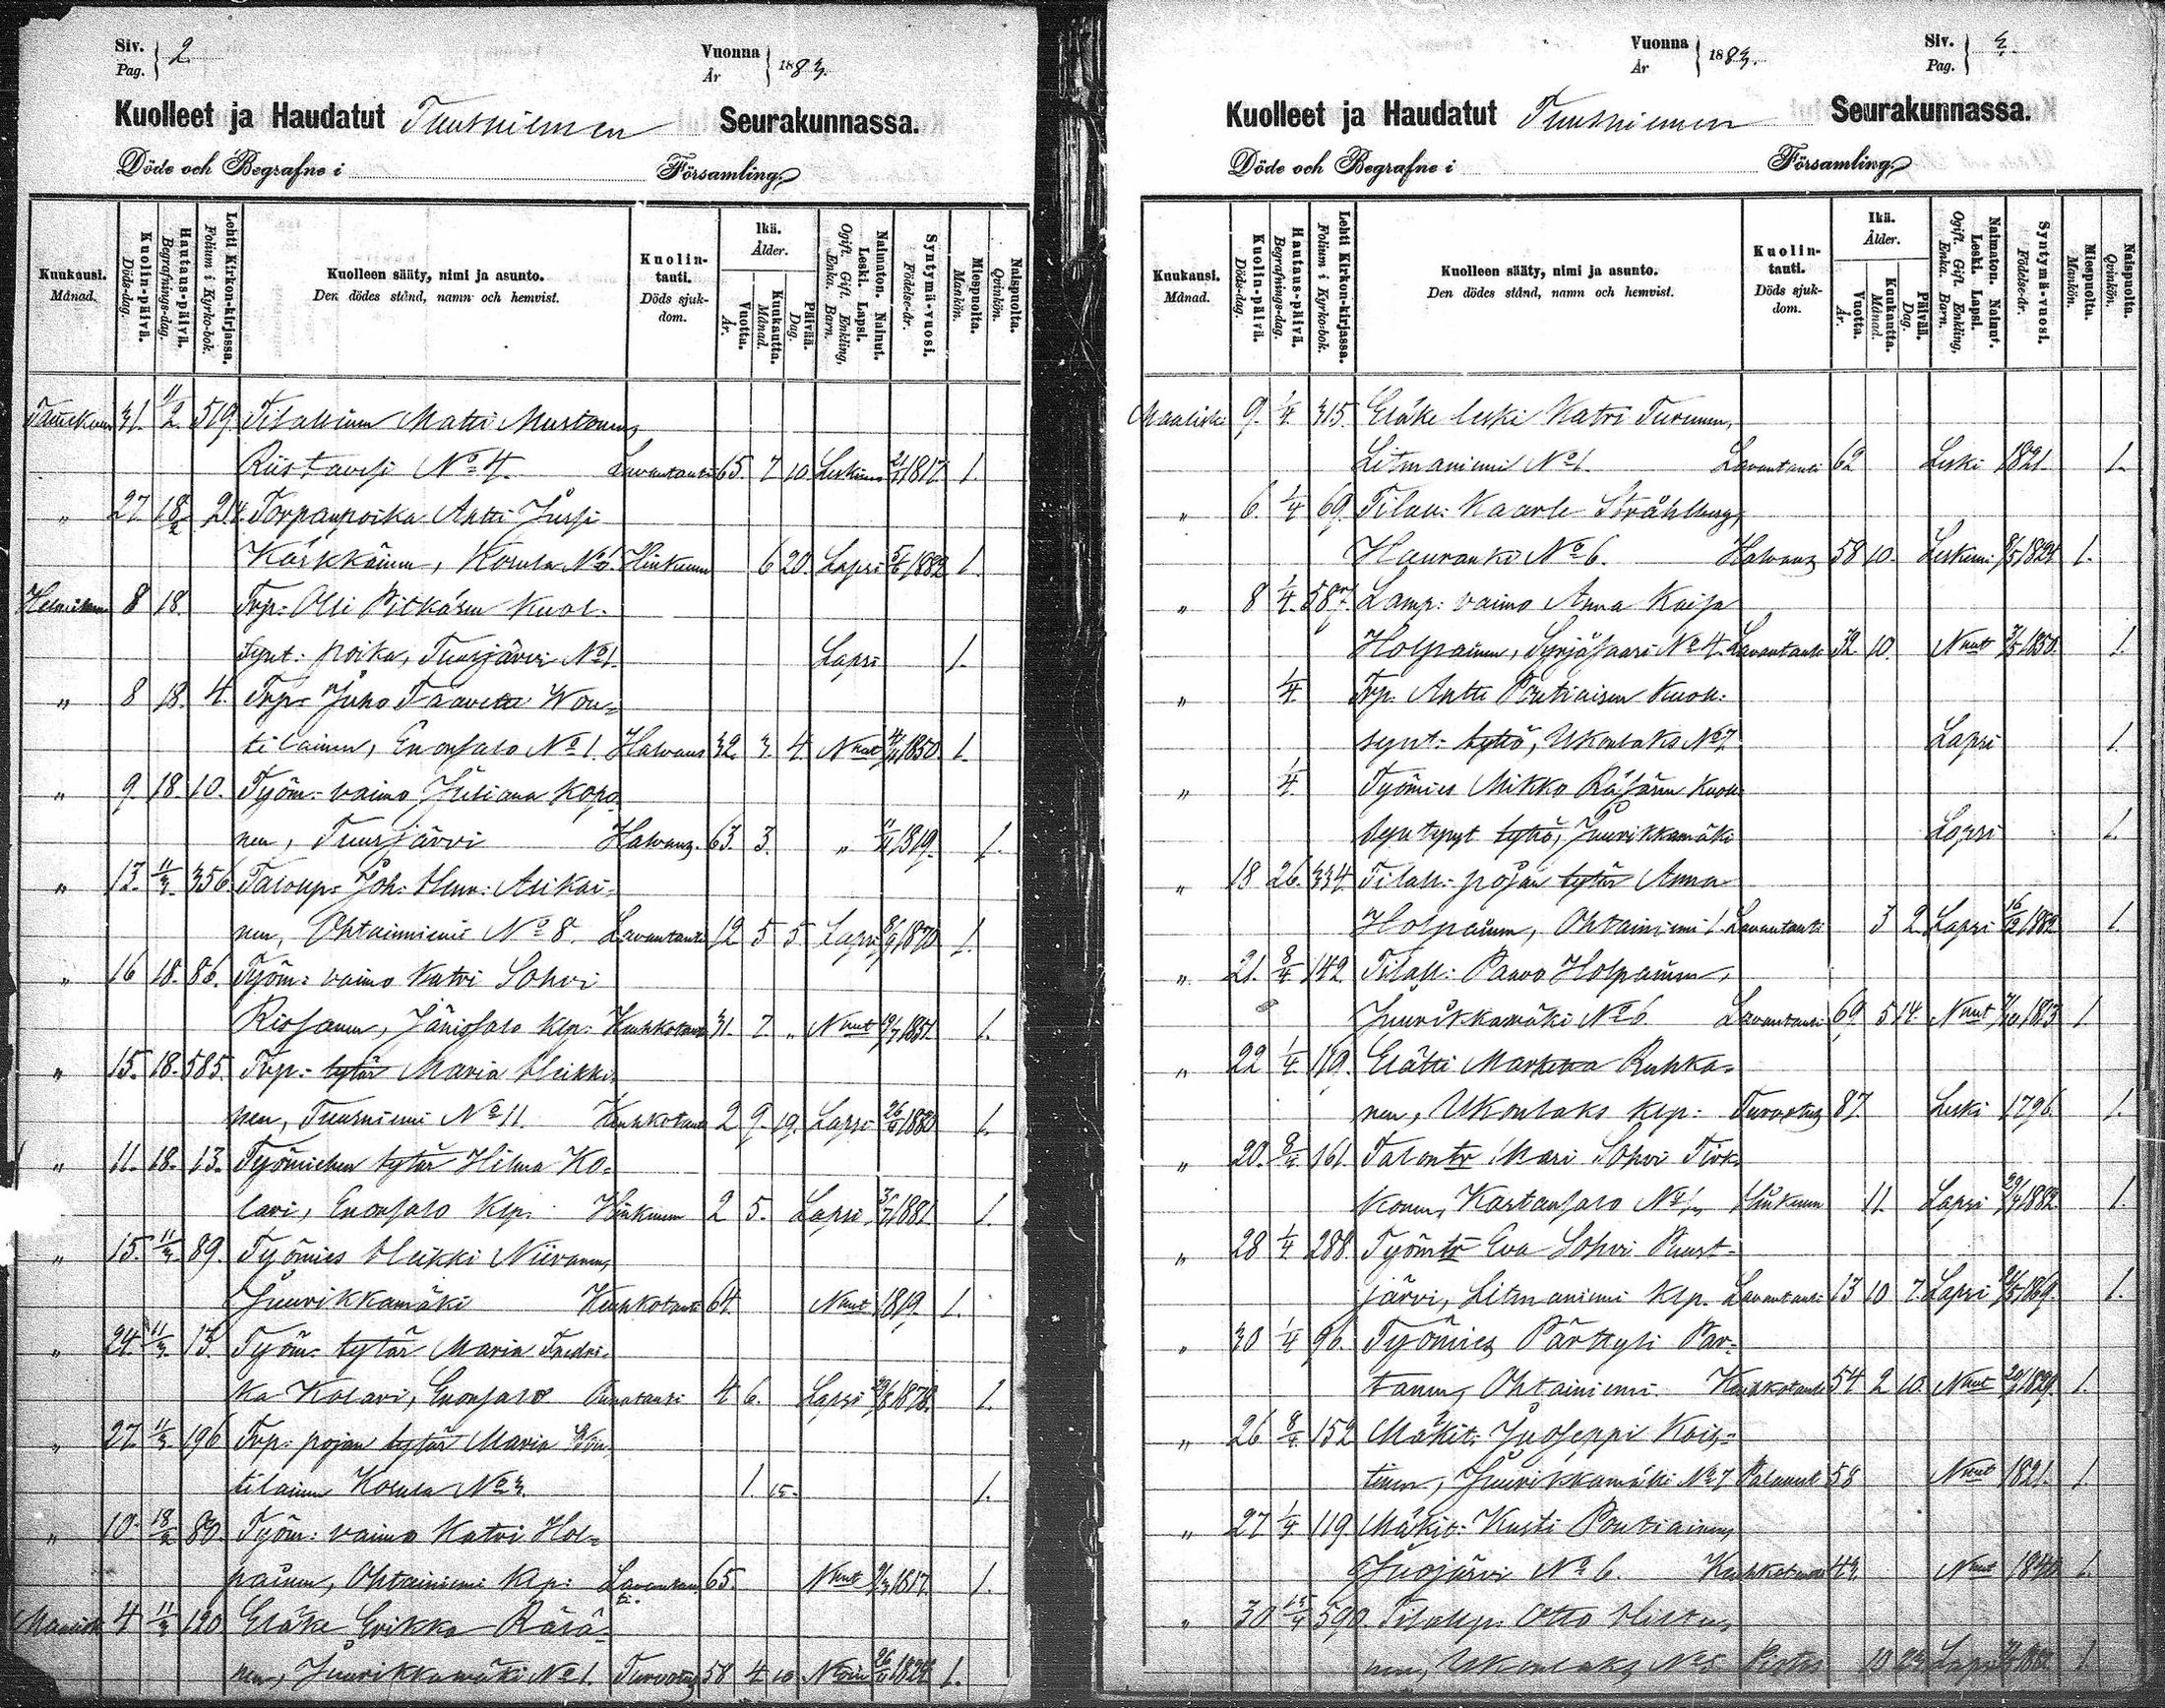 Siv. Pag. 2
Vuonna År 1883.
Kuolleet ja Haudatut Tuusniemen Seurakunnassa.
Döde och Begrafne i Församling.
Kuukausi. Månad.
Kuolin-päivä. Döds-dag.
Hautaus-päivä. Begrafnings-dag.
Lehti Kirkon-kirjassa. Folium i Kyrko-bok.
Kuolleen sääty, nimi ja asunto. Den dödes stånd, namn och hemvist.
Kuolin-tauti. Döds sjuk-dom.
Ikä. Ålder.
Vuotta. År.
Kuukautta. Månad.
Päivää. Dag.
Naimaton. Nainut. Leski. Lapsi. Ogift. Gift. Enkling, Enka. Barn.
Syntymä-vuosi. Födelse-år.
Miespuolta. Mankön.
Naispuolta. Qvinkön.
31. 11/2 519 Matti Mustonen,
Riistavesi No 4. Lavantauti 65. 7 10 Leskimies 1817. 1.
" 27. 18/2 214. Torpanpoika Antti Jussi
Kärkkäinen, Kosula No 6. Hinkunen 6 20. Lapsi 1882. 1.
8 18. Trp: Olli Pitkäsen Kuol.
synt: poika, Tuusjärvi No 1. Lapsi 1.
" 8 18. 4. Trp: Juho Taavetti Wou=
tilainen, Enonsalo No 1. Halvaus 32. 3. 4. Nnut 1850. 1.
" 9. 18. 10. Työm: vaimo Juliana Kopo
nen, Tuusjärvi Halvaus. 63. 3. " 1819. 1.
" 13. 11/3. 356. Joh: Henr: Asikai=
nen, Ohtaanniemi No 8. Lavantauti 12 5 5. Lapsi 1870 1.
" 16 18. 86. Työm: vaimo Katri Sohvi
Jänissalo Klp: Keuhkotauti 31. 7. " Nnut 1851. 1.
" 15. 18. 585. Trp:- tytär Maria Heikki
nen, Tuusniemi No 11. Keuhkotauti 2 9. 19. Lapsi 1880 1.
" 11. 18. 13. Työmiehen tytär Hilma Ko=
lari, Enonsalo Klp: Hinkunen 2 5. Lapsi 1881 1.
" 15. 11/3. 89. Työmies Heikki Niiranen,
Juurikkamäki Keuhkotauti 64. Nnut 1819. 1.
" 24. 11/3. 13. Työm: tytär Maria Fredri=
ka Kolari, Enonsalo 4 6. Lapsi 1878. 1.
" 27. 11/3. 196 Trp: pojan tytär Maria Wou
tilainen Kosula No 3. 1. 15. 1.
" 10. 18/2 80. Työm: vaimo Katri Hol=
painen, Ohtainiemi Klp: Lavantauti. 65. Nnut 1817. 1.
4 11/3 120 Eläke Erikka Räsä=
nen, Juurikkamäki No 1. Turvotus 58 4 10 1824. 1.
Siv. Pag. 3.
Vuonna År 1883.
Kuolleet ja Haudatut Tuusniemen Seurakunnassa.
Döde och Begrafne i Församling.
Kuukausi. Månad.
Kuolin-päivä. Döds-dag.
Hautaus-päivä. Begrafnings-dag.
Lehti Kirkon-kirjassa. Folium i Kyrko-bok.
Kuolleen sääty, nimi ja asunto. Den dödes stånd, namn och hemvist.
Kuolin-tauti. Döds sjuk-dom.
Ikä. Ålder.
Vuotta. År.
Kuukautta. Månad.
Päivää. Dag.
Naimaton. Nainut. Leski. Lapsi. Ogift. Gift. Enkling, Enka. Barn.
Syntymä-vuosi. Födelse-år.
Miespuolta. Mankön.
Naispuolta. Qvinkön.
Maalisk: 9. 1/4 315. Eläke leski Katri Turunen,
Litmaniemi No 1. Lavantauti 62 Leski 1821. 1.
" 6. 1/4 69. Tilall: Kaarle Stråhlberg,
Hauranki No 6. Halvaus 58 10. 1824 1.
" 8 1/4. 587. Lamp: vaimo Anna Kaisa
Holpainen, Syrjäsaari No 4. Lavantauti 32. 10. Nnut 1850. 1.
" 1/4. Trp. Antti Poutiaisen Kuoll:
synt: tyttö, Ukonlaks No 7. Lapsi 1.
" 1/4. Työmies Mikko Räsäsen Kuoll:
syntynyt tyttö, Juurikkamäki Lapsi 1.
" 18 26. 334. Tilall: pojan tytär Anna
Holpainen, Ohtainiemi 1. Lavantauti 3 2 Lapsi 16/12 1882 1.
" 21. 8/4 142 Tilall: Paavo Holpainen,
Juurikkamäki No 6. Lavantauti 69. 5 14. Nnut 1813 1.
" 22 1/4. 119. Elätti Marketta Ruhka=
nen, Ukonlaks Klp: Turvotus 87. Leski 1796. 1.
" 20. 8/4 161. Talontr Mari Sohvi Tirk
konen, Kartansalo No 1, Hinkunen 11. Lapsi 1882. 1.
" 28 1/4 288. Työmtr Eva Sohvi Ruust=
järvi, Litmaniemi Klp. Lavantauti 13 10 7. Lapsi 1869. 1.
" 30 1/4 96. Työmies Pärttyli Par=
tanen, Ohtainiemi. Keuhkotauti 54 2 10. Nnut 1829. 1.
" 26 8/4. 152 Mäkit: Juoseppi Kois=
tinen, Juurikkamäki No 7 58 Nnut 1821. 1.
" 27 1/4 119. Mäkit: Kusti Poutiainen,
Juojärvi No 6. Keuhkotauti 43. Nnut 1840 1.
" 30 15/4 590. Otto
nen, Ukonlaks No 5 10 23 Lapsi 1.